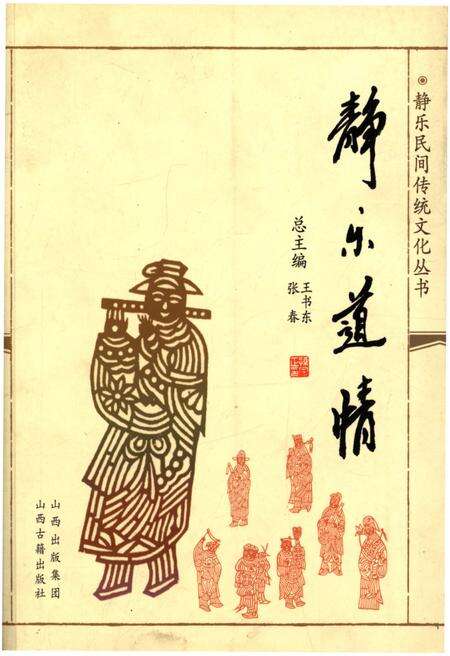 ◉静乐民间传统文化丛书
静乐道情
总主编
王书东
张春
山西出版集团
山西古籍出版社